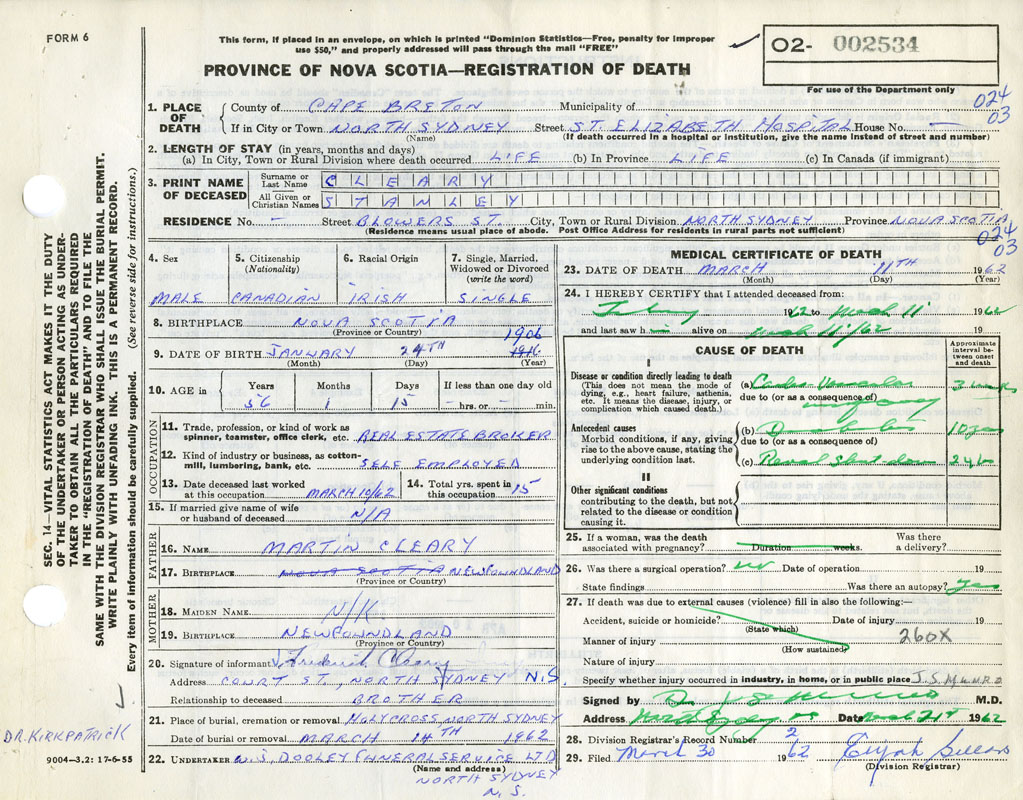 FORM 6
This form, if placed in an envelope, on which is printed "Dominion Statistics—Free, penalty for improper
use $50," and properly addressed will pass through the mail "FREE"
PROVINCE OF NOVA SCOTIA—REGISTRATION OF DEATH
02- 002534
For use of the Department only
024
03
1. PLACE OF DEATH
County of CAPE BRETON Municipality of
If in City or Town NORTH SYDNEY Street ST. ELIZABETH HOSPITAL House No. —
(Name) (If death occurred in a hospital or institution, give the name instead of street and number)
2. LENGTH OF STAY (in years, months and days)
(a) In City, Town or Rural Division where death occurred LIFE (b) In Province LIFE (c) In Canada (if immigrant)
3. PRINT NAME OF DECEASED
Surname or Last Name CLEARY
All Given or Christian Names STANLEY
RESIDENCE No. — Street BLOWERS ST. City, Town or Rural Division NORTH SYDNEY Province NOVA SCOTIA
(Residence means usual place of abode. Post Office Address for residents in rural parts not sufficient)
024
03
4. Sex
MALE
5. Citizenship (Nationality)
CANADIAN
6. Racial Origin
IRISH
7. Single, Married, Widowed or Divorced (write the word)
SINGLE
8. BIRTHPLACE NOVA SCOTIA
(Province or Country)
1906
9. DATE OF BIRTH JANUARY 24TH 1916
(Month) (Day) (Year)
10. AGE in Years Months Days If less than one day old
56 1 15 — hrs. or — min.
OCCUPATION
11. Trade, profession, or kind of work as
spinner, teamster, office clerk, etc. REAL ESTATE BROKER
12. Kind of industry or business, as cotton-
mill, lumbering, bank, etc. SELF EMPLOYED
13. Date deceased last worked
at this occupation MARCH 10/62
14. Total yrs. spent in
this occupation 15
15. If married give name of wife
or husband of deceased N/A
FATHER
16. NAME MARTIN CLEARY
17. BIRTHPLACE NOVA SCOTIA NEWFOUNDLAND
(Province or Country)
MOTHER
18. MAIDEN NAME N/K
19. BIRTHPLACE NEWFOUNDLAND
(Province or Country)
20. Signature of informant Frederick Cleary
Address COURT ST., NORTH SYDNEY N.S.
Relationship to deceased BROTHER
21. Place of burial, cremation or removal HOLYCROSS, NORTH SYDNEY
Date of burial or removal MARCH 14TH 1962
22. UNDERTAKER W.J. DOOLEY FUNERAL SERVICE LTD
(Name and address)
NORTH SYDNEY
N.S.
MEDICAL CERTIFICATE OF DEATH
23. DATE OF DEATH MARCH 11TH 1962
(Month) (Day) (Year)
24. I HEREBY CERTIFY that I attended deceased from:
1962 to March 11 1962
and last saw him alive on March 11/62 19
CAUSE OF DEATH
Approximate interval between onset and death
I
Disease or condition directly leading to death
(This does not mean the mode of
dying, e.g., heart failure, asthenia,
etc. It means the disease, injury, or
complication which caused death.)
(a) Cardio Vascular 3 weeks
due to (or as a consequence of)
Antecedent causes
Morbid conditions, if any, giving
rise to the above cause, stating the
underlying condition last.
(b) Diabetes 10 yrs
due to (or as a consequence of)
(c) Renal Shut down 24 h
II
Other significant conditions
contributing to the death, but not
related to the disease or condition
causing it.
25. If a woman, was the death
associated with pregnancy? Duration weeks. Was there
a delivery?
26. Was there a surgical operation? no Date of operation 19
State findings Was there an autopsy? yes
27. If death was due to external causes (violence) fill in also the following:—
Accident, suicide or homicide? Date of injury 19
(State which)
Manner of injury 260X
(How sustained)
Nature of injury
Specify whether injury occurred in industry, in home, or in public place
Signed by M.D.
Address North Sydney NS Date March 21st 1962
28. Division Registrar's Record Number 2
29. Filed March 30 1962 Elijah
(Division Registrar)
SEC. 14—VITAL STATISTICS ACT MAKES IT THE DUTY
OF THE UNDERTAKER OR PERSON ACTING AS UNDER-
TAKER TO OBTAIN ALL THE PARTICULARS REQUIRED
IN THE "REGISTRATION OF DEATH" AND TO FILE THE
SAME WITH THE DIVISION REGISTRAR WHO SHALL ISSUE THE BURIAL PERMIT.
WRITE PLAINLY WITH UNFADING INK. THIS IS A PERMANENT RECORD.
Every item of information should be carefully supplied. (See reverse side for instructions.)
DR. KIRKPATRICK
9004—3.2: 17-6-55